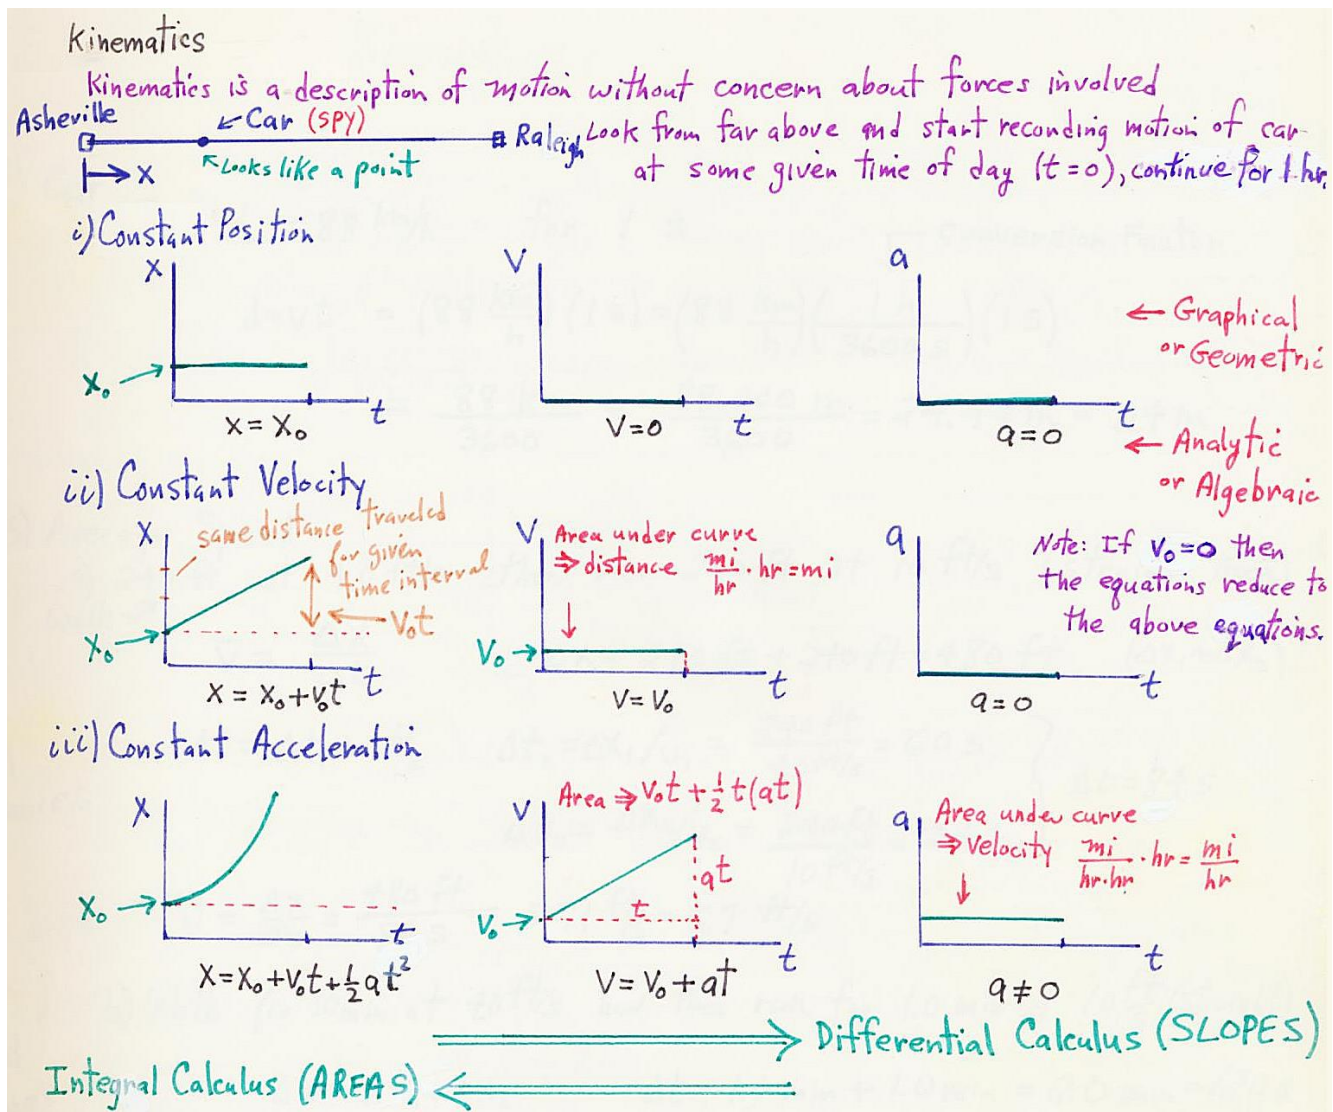 Kinematics
Kinematics is a description of motion without concern about forces involved
Asheville
←Car (SPY)
Raleigh
Look from far above and start reconding motion of car
at some given time of day (t=0), continue for 1 hr.
→ X
↖Looks like a point
i) Constant Position
X
V
a
← Graphical
or Geometric
X₀ →
t
t
t
X = X₀
V=0
a=0
← Analytic
or Algebraic
ii) Constant Velocity
X
same distance traveled
for given
time interval
← V₀t
X₀ →
t
X = X₀+V₀t
V
Area under curve
⇒ distance mi/hr · hr = mi
V₀ →
t
V = V₀
a
t
a = 0
Note: If V₀=0 then
the equations reduce to
the above equations.
iii) Constant Acceleration
X
X₀ →
t
X=X₀+V₀t+½at²
V
Area ⇒ V₀t + ½ t(at)
at
t
V₀ →
t
V = V₀ + at
a
Area under curve
⇒ Velocity mi/hr·hr · hr = mi/hr
t
a ≠ 0
⟹ Differential Calculus (SLOPES)
Integral Calculus (AREAS) ⟸